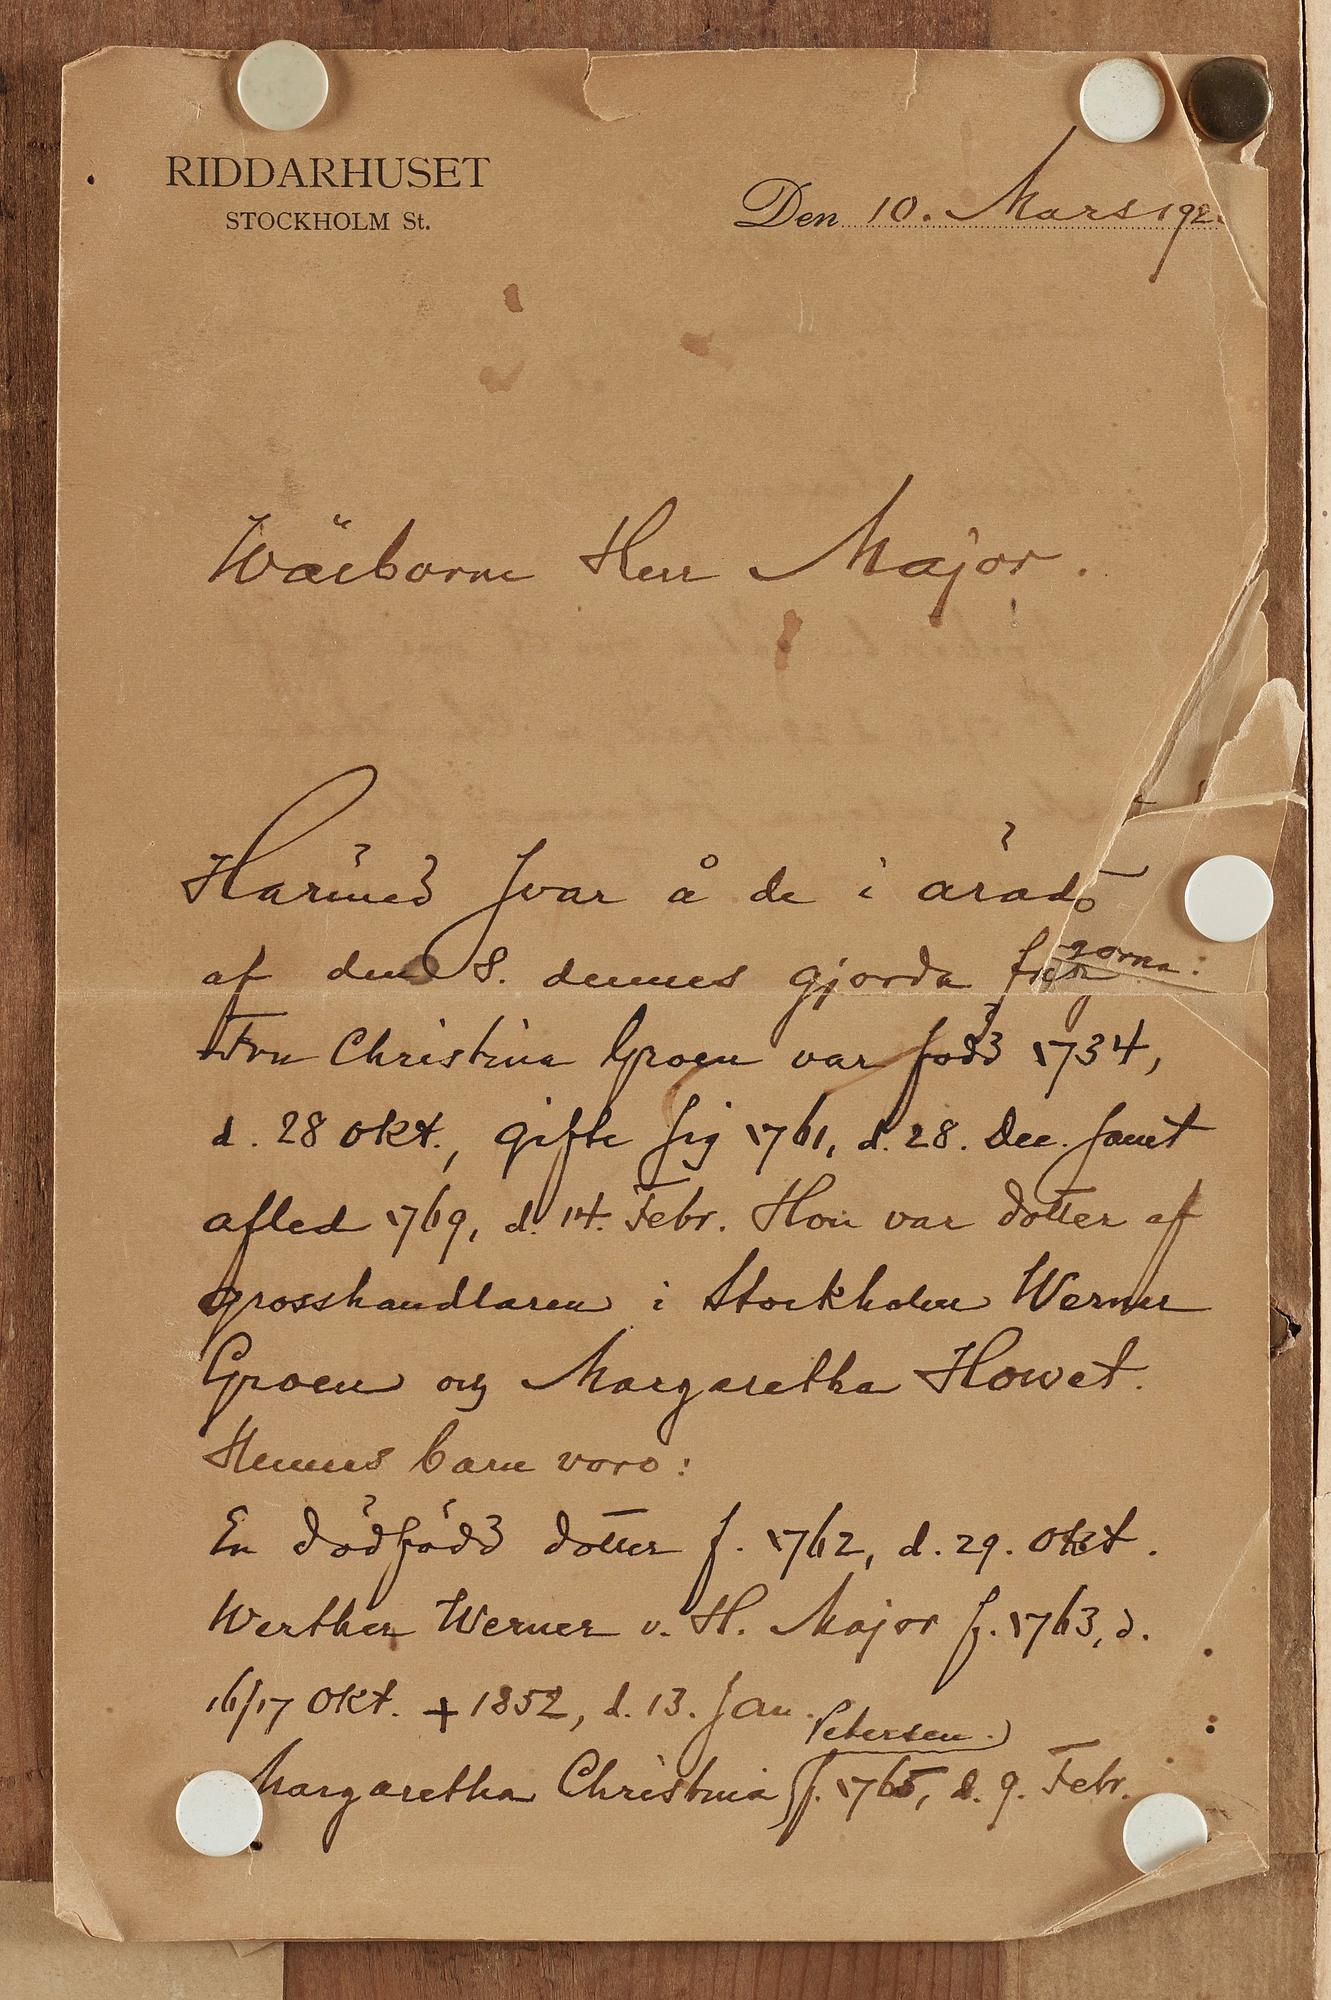 RIDDARHUSET
STOCKHOLM St.
Den 10. Mars 192
Wälborne Herr Major.
Härmed svar å de i
af den 8. dennes gjorda
gorna:
Fru Christina Groen var född 1734,
d. 28 Okt., gifte sig 1761, d. 28. Dec. samt
afled 1769, d. 14. Febr. Hon var dotter af
grosshandlaren i Stockholm Werner
Groen och Margaretha Howet.
Hennes barn voro:
En dödfödd dotter f. 1762, d. 29. Okt.
Werther Werner v. H. Major f. 1763, d.
16/17 Okt. + 1852, d. 13. Jan.
Petersen.)
Margaretha Christina f. 1765, d. 9. Febr.